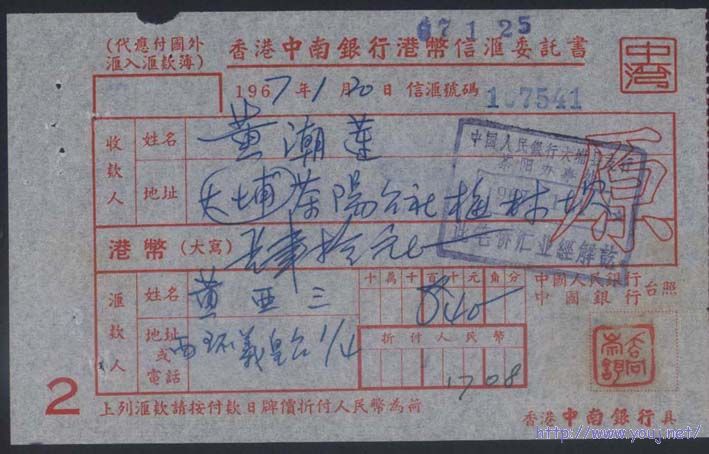 67 1 25
(代應付國外
滙入滙款簿)
香港中南銀行港幣信滙委託書
中灣
1967年1月20日 信滙號碼 107541
收款人
姓名 黃潮蓮
地址 大埔茶陽公社梅林坎
原
中國人民銀行大埔
茶陽
此笔侨汇业經解訖
港幣(大寫) 肆拾元正
滙款人
姓名 黃亞三
地址或電話 西环義皇台1/4
十萬千百十元角分
$40
折付人民幣
17 08
中國人民銀行
中國銀行 台照
2
上列滙款請按付款日牌價折付人民幣為荷
香港中南銀行具
http://www.youj.net/